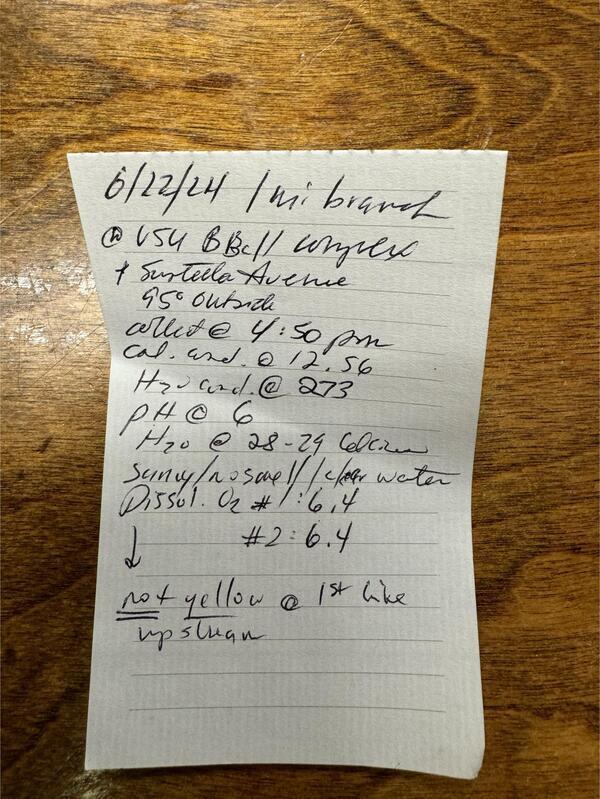 6/22/24 / mi branch
@ VSU BBall complex
+ Sustella Avenue
95° outside
collect @ 4:50 pm
cal. cond. @ 12.56
H2O cond. @ 273
pH @ 6
H2O @ 28-29 Celcius
Sunny/no smell/clear water
Dissol. O2 #1: 6.4
↓ #2: 6.4
not yellow @ 1st like
upstream